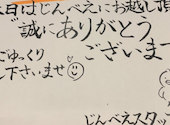 日はじんべえにお越し頂
誠にありがとう
ございます
ごゆっくり
し下さいませ
じんべえスタッ